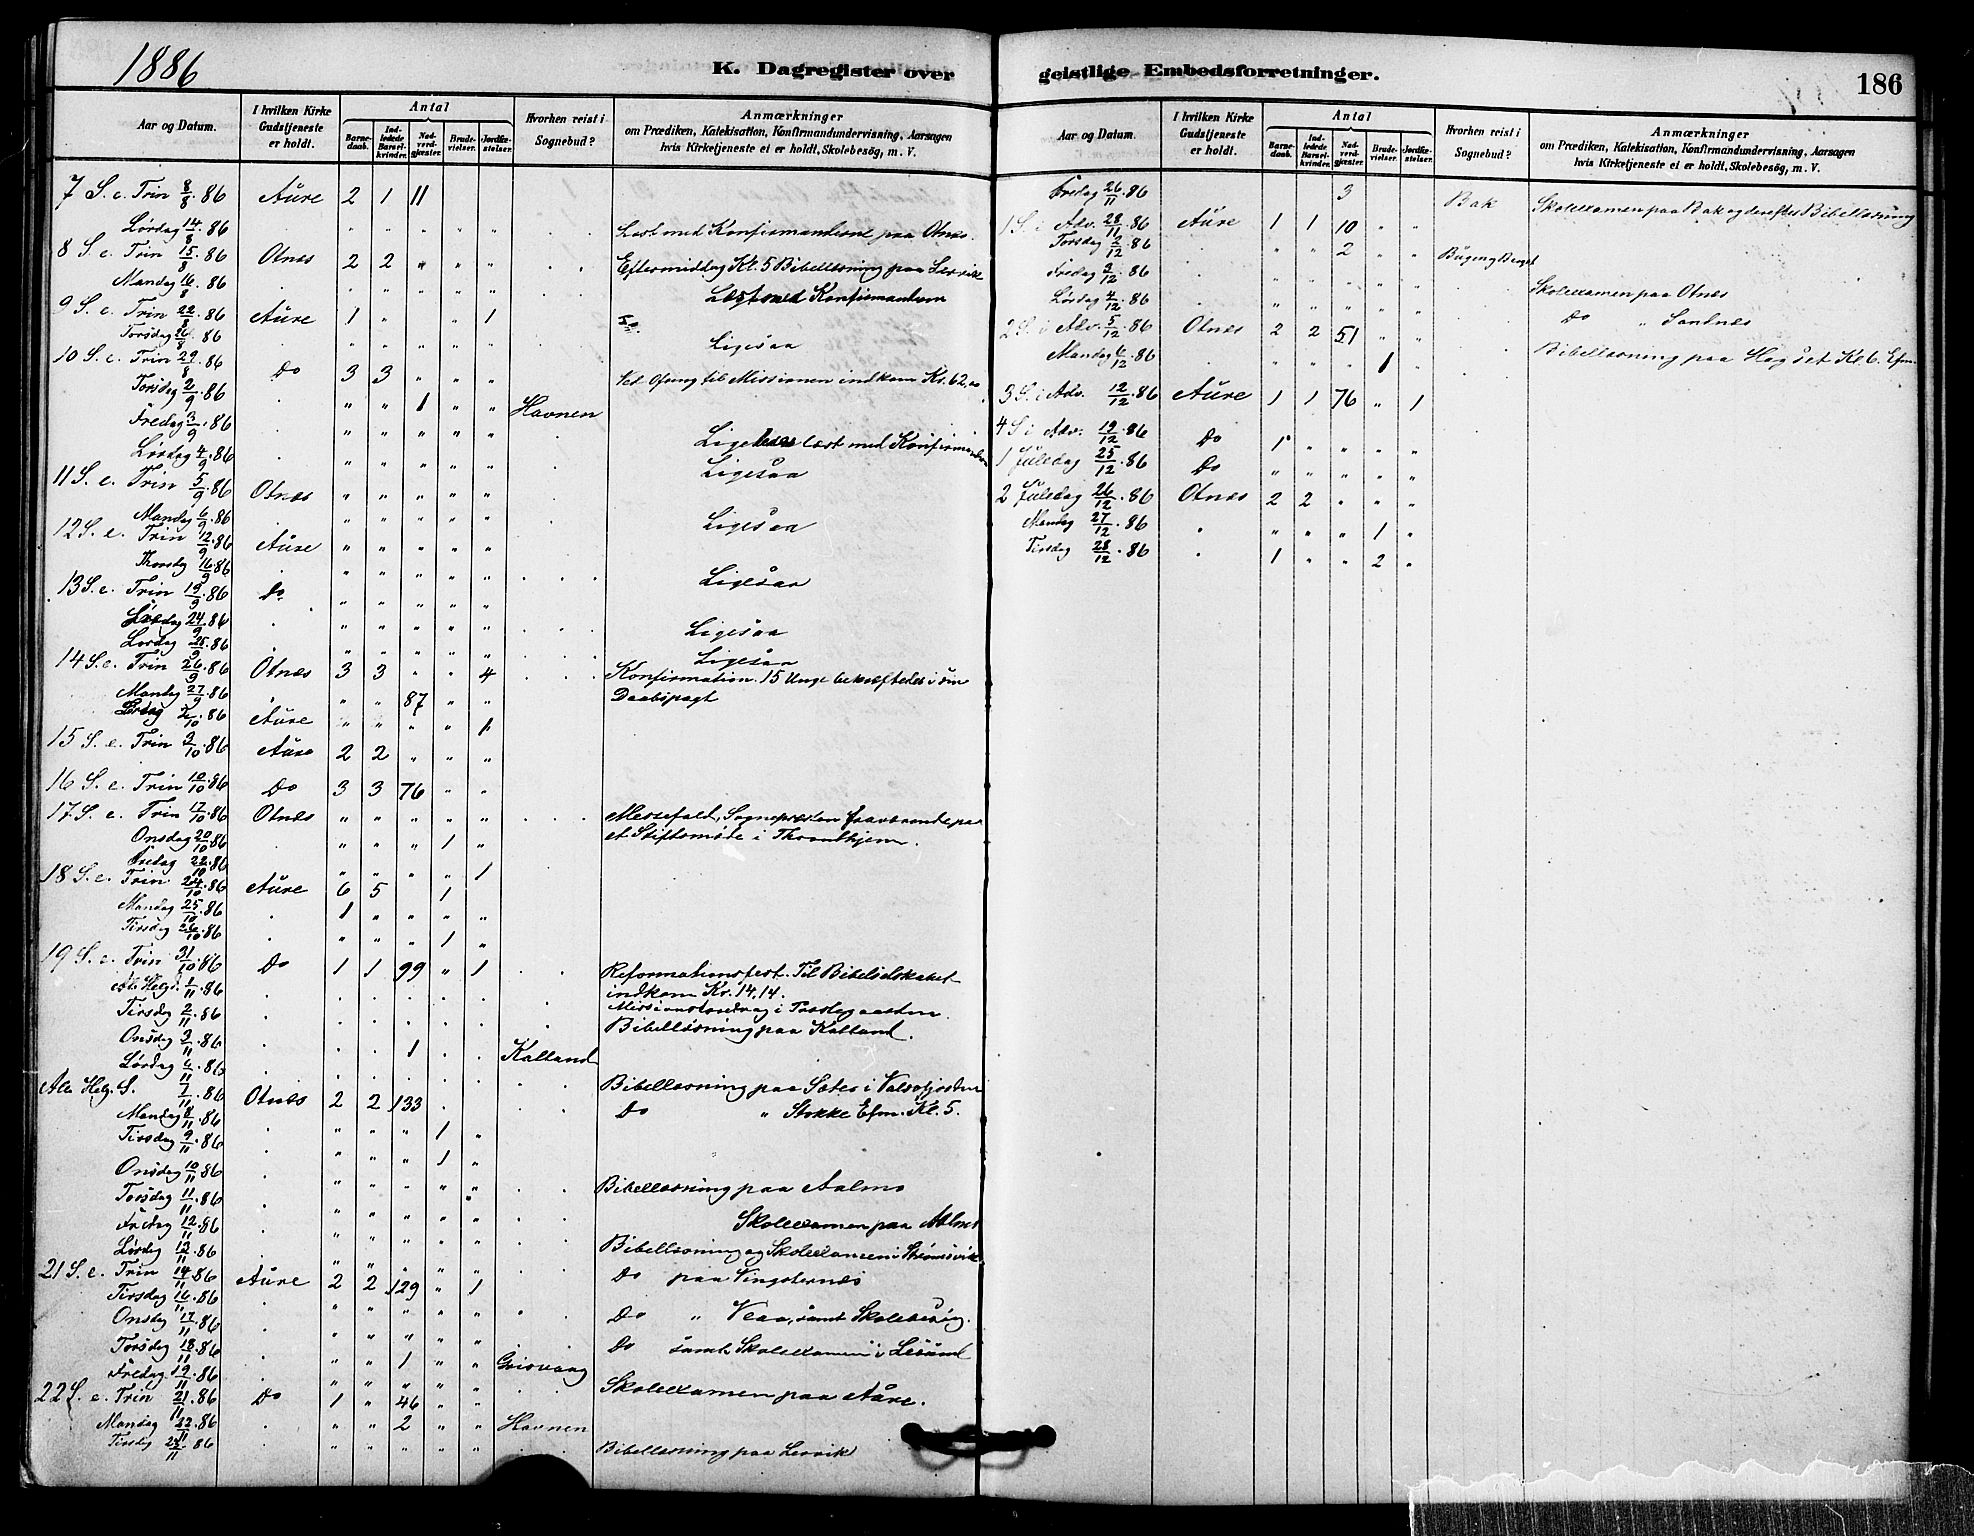 1886
K. Dagregister over
Aar og Datum. I hvilken Kirke Gudstjeneste er holdt. Antal Barnedaab. Indledede Barselkvinder. Nadverdgjæster. Brudevielser. Jordfæstelser. Hvorhen reist i Sognebud? Anmærkninger om Prædiken, Katekisation, Konfirmandundervisning, Aarsagen hvis Kirketjeneste ei er holdt, Skolebesøg, m. V.
7 S. e. Trin 8/8.86 Aure 2 1 11
Lørdag 14/8.86 . " " " " " Læst med Konfirmanderne paa Otnes.
8 S. e. Trin 15/8.86 Otnes 2 2 " " " Eftermiddag Kl. 5 Bibellæsning paa Lervik
Mandag 16/8.86 . " " " " " Læst med Konfirmanderne
9 S. e. Trin 22/8.86 Aure 1 " " 1 Do
Torsdag 26/8.86 . " " " " " Ligesaa
10 S. e. Trin 29/8.86 Do 3 3 " " " Ved Ofring til Missionen indkom Kr. 62,00
Torsdag 2/9.86 . " " 1 " " Havnen
Fredag 3/9.86 . " " " " " læst med Konfirmanderne
Lørdag 4/9.86 . " " " " " Ligesaa
11 S. e. Trin 5/9.86 Otnes " " " " "
Mandag 6/9.86 . " " " " " Ligesaa
12 S. e. Trin 12/9.86 Aure " " " " "
Thorsdag 16/9.86 . " " " " " Ligesaa
13 S. e. Trin 19/9.86 Do " " " " "
24/9.86 . " " " " " Ligesaa
Lørdag 25/9.86 . " " " " " Ligesaa
14 S. e. Trin 26/9.86 Otnes 3 3 " " 4 Konfirmation. 15 Unge bekræftedes i sin
Mandag 27/9.86 . " " 87 " " Daabspagt
Lørdag 2/10.86 Aure " " " " 1
15 S. e. Trin 3/10.86 Aure 2 2 " " "
16 S. e. Trin 10/10.86 Do 3 3 76 " "
17 S. e. Trin 17/10.86 Otnes " " " " " Messefald, Sognepræsten fraværende paa
Onsdag 20/10.86 " " " 1 " et Stiftsmøde i Throndhjem.
Fredag 22/10.86 " " " " 1
18 S. e. Trin 24/10.86 Aure 6 5 1
Mandag 25/10.86 . 1 " " " "
Tirsdag 26/10.86 . " " " 1 "
19 S. e. Trin 31/10.86 Do 1 1 99 " 1 Reformationsfest. Til Bibelselskabet
Al. Helg. 1/11.86 . indkom Kr. 14,14.
Tirsdag 2/11.86 . Missionsforedrag i Præstegaarden.
Onsdag 3/11.86 . 1 Kalland Bibellæsning paa Kalland.
Lørdag 6/11.86 . Bibellæsning paa Sætes i Valsøfjorden
Alle Helg. S. 7/11.86 Otnes 2 2 133 Do " Stokke Efm. Kl. 5.
Mandag 8/11.86 . " " " 1 "
Tirsdag 9/11.86 . " " " 1 "
Onsdag 10/11.86 . " " " " " Bibellæsning paa Aalmo
Torsdag 11/11.86 . " " " " " Skoleexamen paa Aalmo
Fredag 12/11.86 . " " " " " Bibellæsning og Skoleexamen i Strømsvik
Lørdag 13/11.86 . " " " " "
21 S. e. Trin 14/11.86 Aure 2 2 129 " 1 Do paa Vingsternes
Tirsdag 16/11.86 . " " " " " Do " Veaa, samt Skolebesøg.
Onsdag 17/11.86 . " " " " " Do samt Skoleexamen i Lesund
Torsdag 18/11.86 . " " 1 " " Grisvaag
Fredag 19/11.86 . " " " " " Skoleexamen paa Aure.
22 S. e. Trin 21/11.86 Do 1 " 46 " "
Mandag 22/11.86 . " " 2 " " Havnen
Tirsdag 23/11.86 . " " " " " Bibellæsning paa Lervik
geistlige Embedsforretninger.
186
Aar og Datum. I hvilken Kirke Gudstjeneste er holdt. Antal Barnedaab. Indledede Barselkvinder. Nadverdgjæster. Brudevielser. Jordfæstelser. Hvorhen reist i Sognebud? Anmærkninger om Prædiken, Katekisation, Konfirmandundervisning, Aarsagen hvis Kirketjeneste ei er holdt, Skolebesøg, m. V.
Fredag 26/11.86 3 Bak Skoleexamen paa Bak og derefter Bibellæsning
1 S. i Adv. 28/11.86 Aure 1 1 10 " "
Torsdag 2/12.86 " " 2 " "
Fredag 3/12.86 . " " " " " Skoleexamen paa Otnes
Lørdag 4/12.86 . " " " " " Do " Sandnes
2 S. i Adv. 5/12.86 Otnes 2 2 51 " "
Mandag 6/12.86 . " " " 1 " Bibellæsning paa Hogset Kl. 6. Efm.
3 S. i Adv. 12/12.86 Aure 1 1 76 " 1
4 S. i Adv. 19/12.86 Do 1 " " " "
1 Juledag 25/12.86 Do " " " " "
2 Juledag 26/12.86 Otnes 2 2 " " "
Mandag 27/12.86 . " " " 1 "
Tirsdag 28/12.86 . 1 " " 2 "